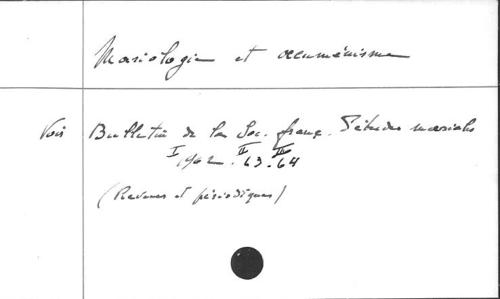 Mariologie et œcuménisme
Voir Bulletin de la Soc. franç. d'études mariales
I 1962. II 63. III 64
(Revues et périodiques)